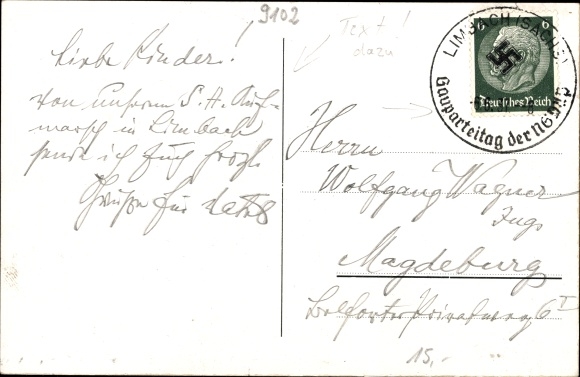 9102
Text!
dazu
Liebe Kinder!
von unserem S.A. Auf-
marsch in Limbach
sende ich Euch herzl.
Grüße Eur
LIMBACH (SACHS)
Gauparteitag der NSDAP
Deutsches Reich
Herrn
Wolfgang Wagner
Magdeburg
Belforter Privatweg 6 I
15,-